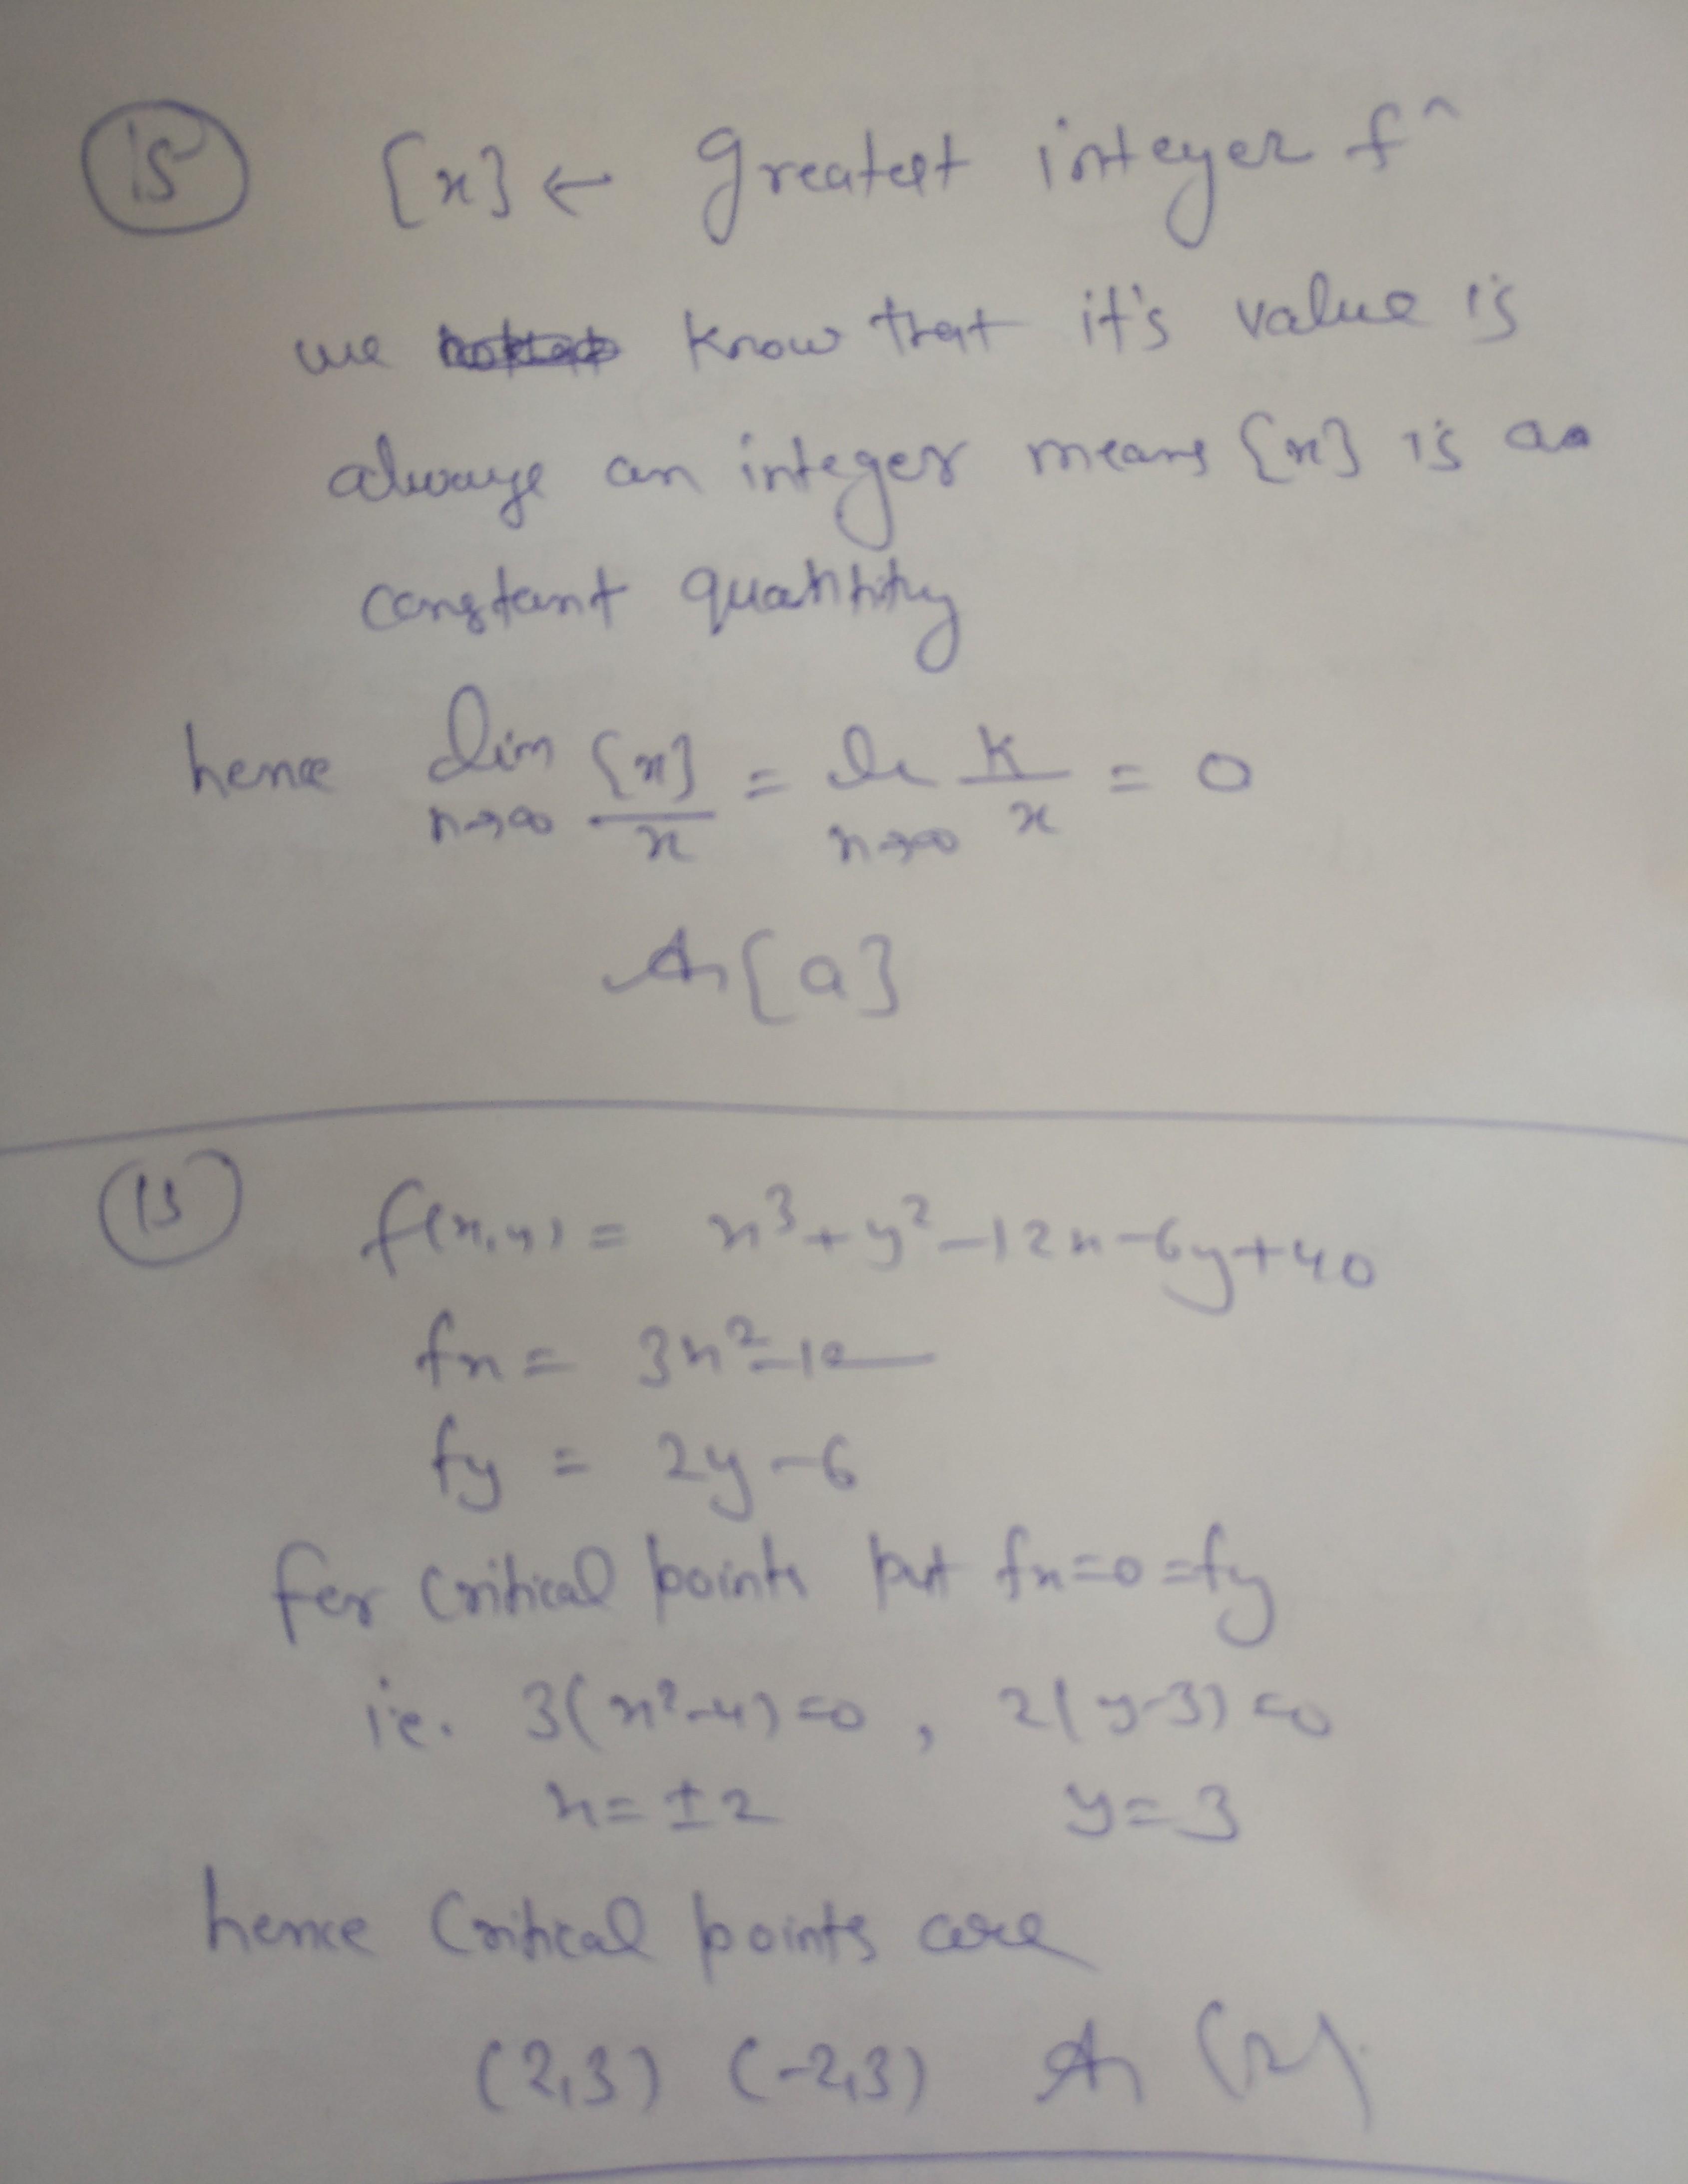 15 [x] ← greatest integer f^n
we know that it's value is
always an integer means [x] is a
constant quantity
hence lim n→∞ [x]/x = lim n→∞ k/x = 0
An [a]
13 f(x,y) = x³+y²-12x-6y+40
fx = 3x²-12
fy = 2y-6
for critical points put fx=0=fy
i.e. 3(x²-4)=0, 2(y-3)=0
x=±2 y=3
hence critical points are
(2,3) (-2,3) An